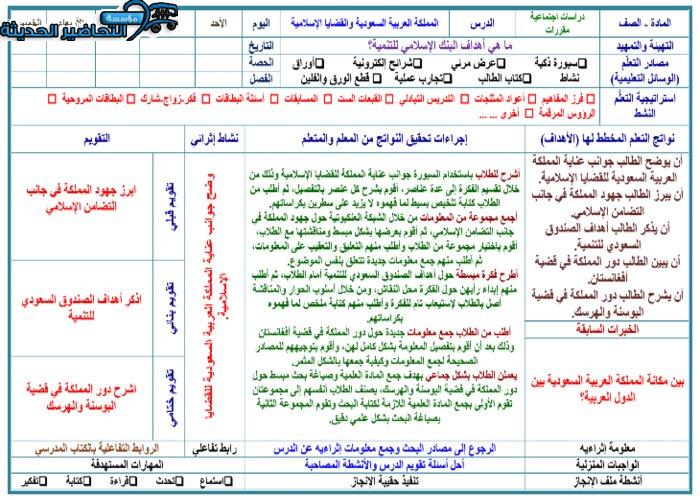 مؤسسة
التحاضير الحديثة
المادة - الصف
دراسات اجتماعية
مقررات
الدرس
المملكة العربية السعودية والقضايا الإسلامية
اليوم
الأحد
الخميس
التهيئة والتمهيد
ما هي أهداف البنك الإسلامي للتنمية؟
التاريخ
مصادر التعلم
(الوسائل التعليمية)
سبورة ذكية
عرض مرئي
شرائح إلكترونية
أوراق
الحصة
نشاط
كتاب الطالب
تجارب عملية
قطع الورق والفلين
الفصل
استراتيجية التعلم
النشط
فرز المفاهيم
أعواد المثلجات
التدريس التبادلي
القبعات الست
المسابقات
أسئلة البطاقات
فكر-زواج-شارك
البطاقات المروحية
الرؤوس المرقمة
أخرى ... ...
نواتج التعلم المخطط لها (الأهداف)
إجراءات تحقيق النواتج من المعلم والمتعلم
نشاط إثرائي
التقويم
أن يوضح الطالب جوانب عناية المملكة
العربية السعودية للقضايا الإسلامية.
أن يبرز الطالب جهود المملكة في جانب
التضامن الإسلامي.
أن يذكر الطالب أهداف الصندوق
السعودي للتنمية.
أن يبين الطالب دور المملكة في قضية
أفغانستان.
أن يشرح الطالب دور المملكة في قضية
البوسنة والهرسك.
الخبرات السابقة
بين مكانة المملكة العربية السعودية بين
الدول العربية؟
أشرح للطلاب باستخدام السبورة جوانب عناية المملكة للقضايا الإسلامية وذلك من
خلال تقسيم الفكرة إلى عدة عناصر، أقوم بشرح كل عنصر بالتفصيل، ثم أطلب من
الطلاب كتابة تلخيص بسيط لما فهموه لا يزيد على سطرين بكراساتهم.
أجمع مجموعة من المعلومات من خلال الشبكة العنكبوتية حول جهود المملكة في
جانب التضامن الإسلامي، ثم أقوم بعرضها بشكل مبسط ومناقشتها مع الطلاب،
أقوم باختيار مجموعة من الطلاب وأطلب منهم التعليق والتعقيب على المعلومات،
ثم أطلب منهم جمع معلومات جديدة تتعلق بنفس الموضوع.
أطرح فكرة مبسطة حول أهداف الصندوق السعودي للتنمية أمام الطلاب، ثم أطلب
منهم إبداء رأيهن حول الفكرة محل النقاش، ومن خلال أسلوب الحوار والمناقشة
أصل بالطلاب لإستيعاب تام للفكرة وأطلب منهم كتابة ملخص لما فهموه
بكراساتهم.
أطلب من الطلاب جمع معلومات جديدة حول دور المملكة في قضية أفغانستان
وذلك بعد أن أقوم بتفصيل المعلومة بشكل كامل لهن، وأقوم بتوجيههم للمصادر
الصحيحة لجمع المعلومات وكيفية جمعها بالشكل المثمر.
يعملن الطلاب بشكل جماعي بهدف جمع المادة العلمية وصياغة بحث مبسط حول
دور المملكة في قضية البوسنة والهرسك، يصنف الطلاب أنفسهم إلى مجموعتان
تقوم الأولى بجمع المادة العلمية اللازمة لكتابة البحث وتقوم المجموعة الثانية
بصياغة البحث بشكل علمي دقيق.
وضح جوانب عناية المملكة العربية السعودية للقضايا
الإسلامية.
تقويم قبلي
ابرز جهود المملكة في جانب
التضامن الإسلامي
تقويم بنائي
اذكر أهداف الصندوق السعودي
للتنمية
تقويم ختامي
اشرح دور المملكة في قضية
البوسنة والهرسك
معلومة إثراءيه
الرجوع إلى مصادر البحث وجمع معلومات إثراءيه عن الدرس
رابط تفاعلي
الروابط التفاعلية بالكتاب المدرسي
الواجبات المنزلية
أحل أسئلة تقويم الدرس والأنشطة المصاحبة
المهارات المستهدفة
أنشطة ملف الإنجاز
تنفيذ حقيبة الإنجاز
استماع
تحدث
قراءة
كتابة
تفكير